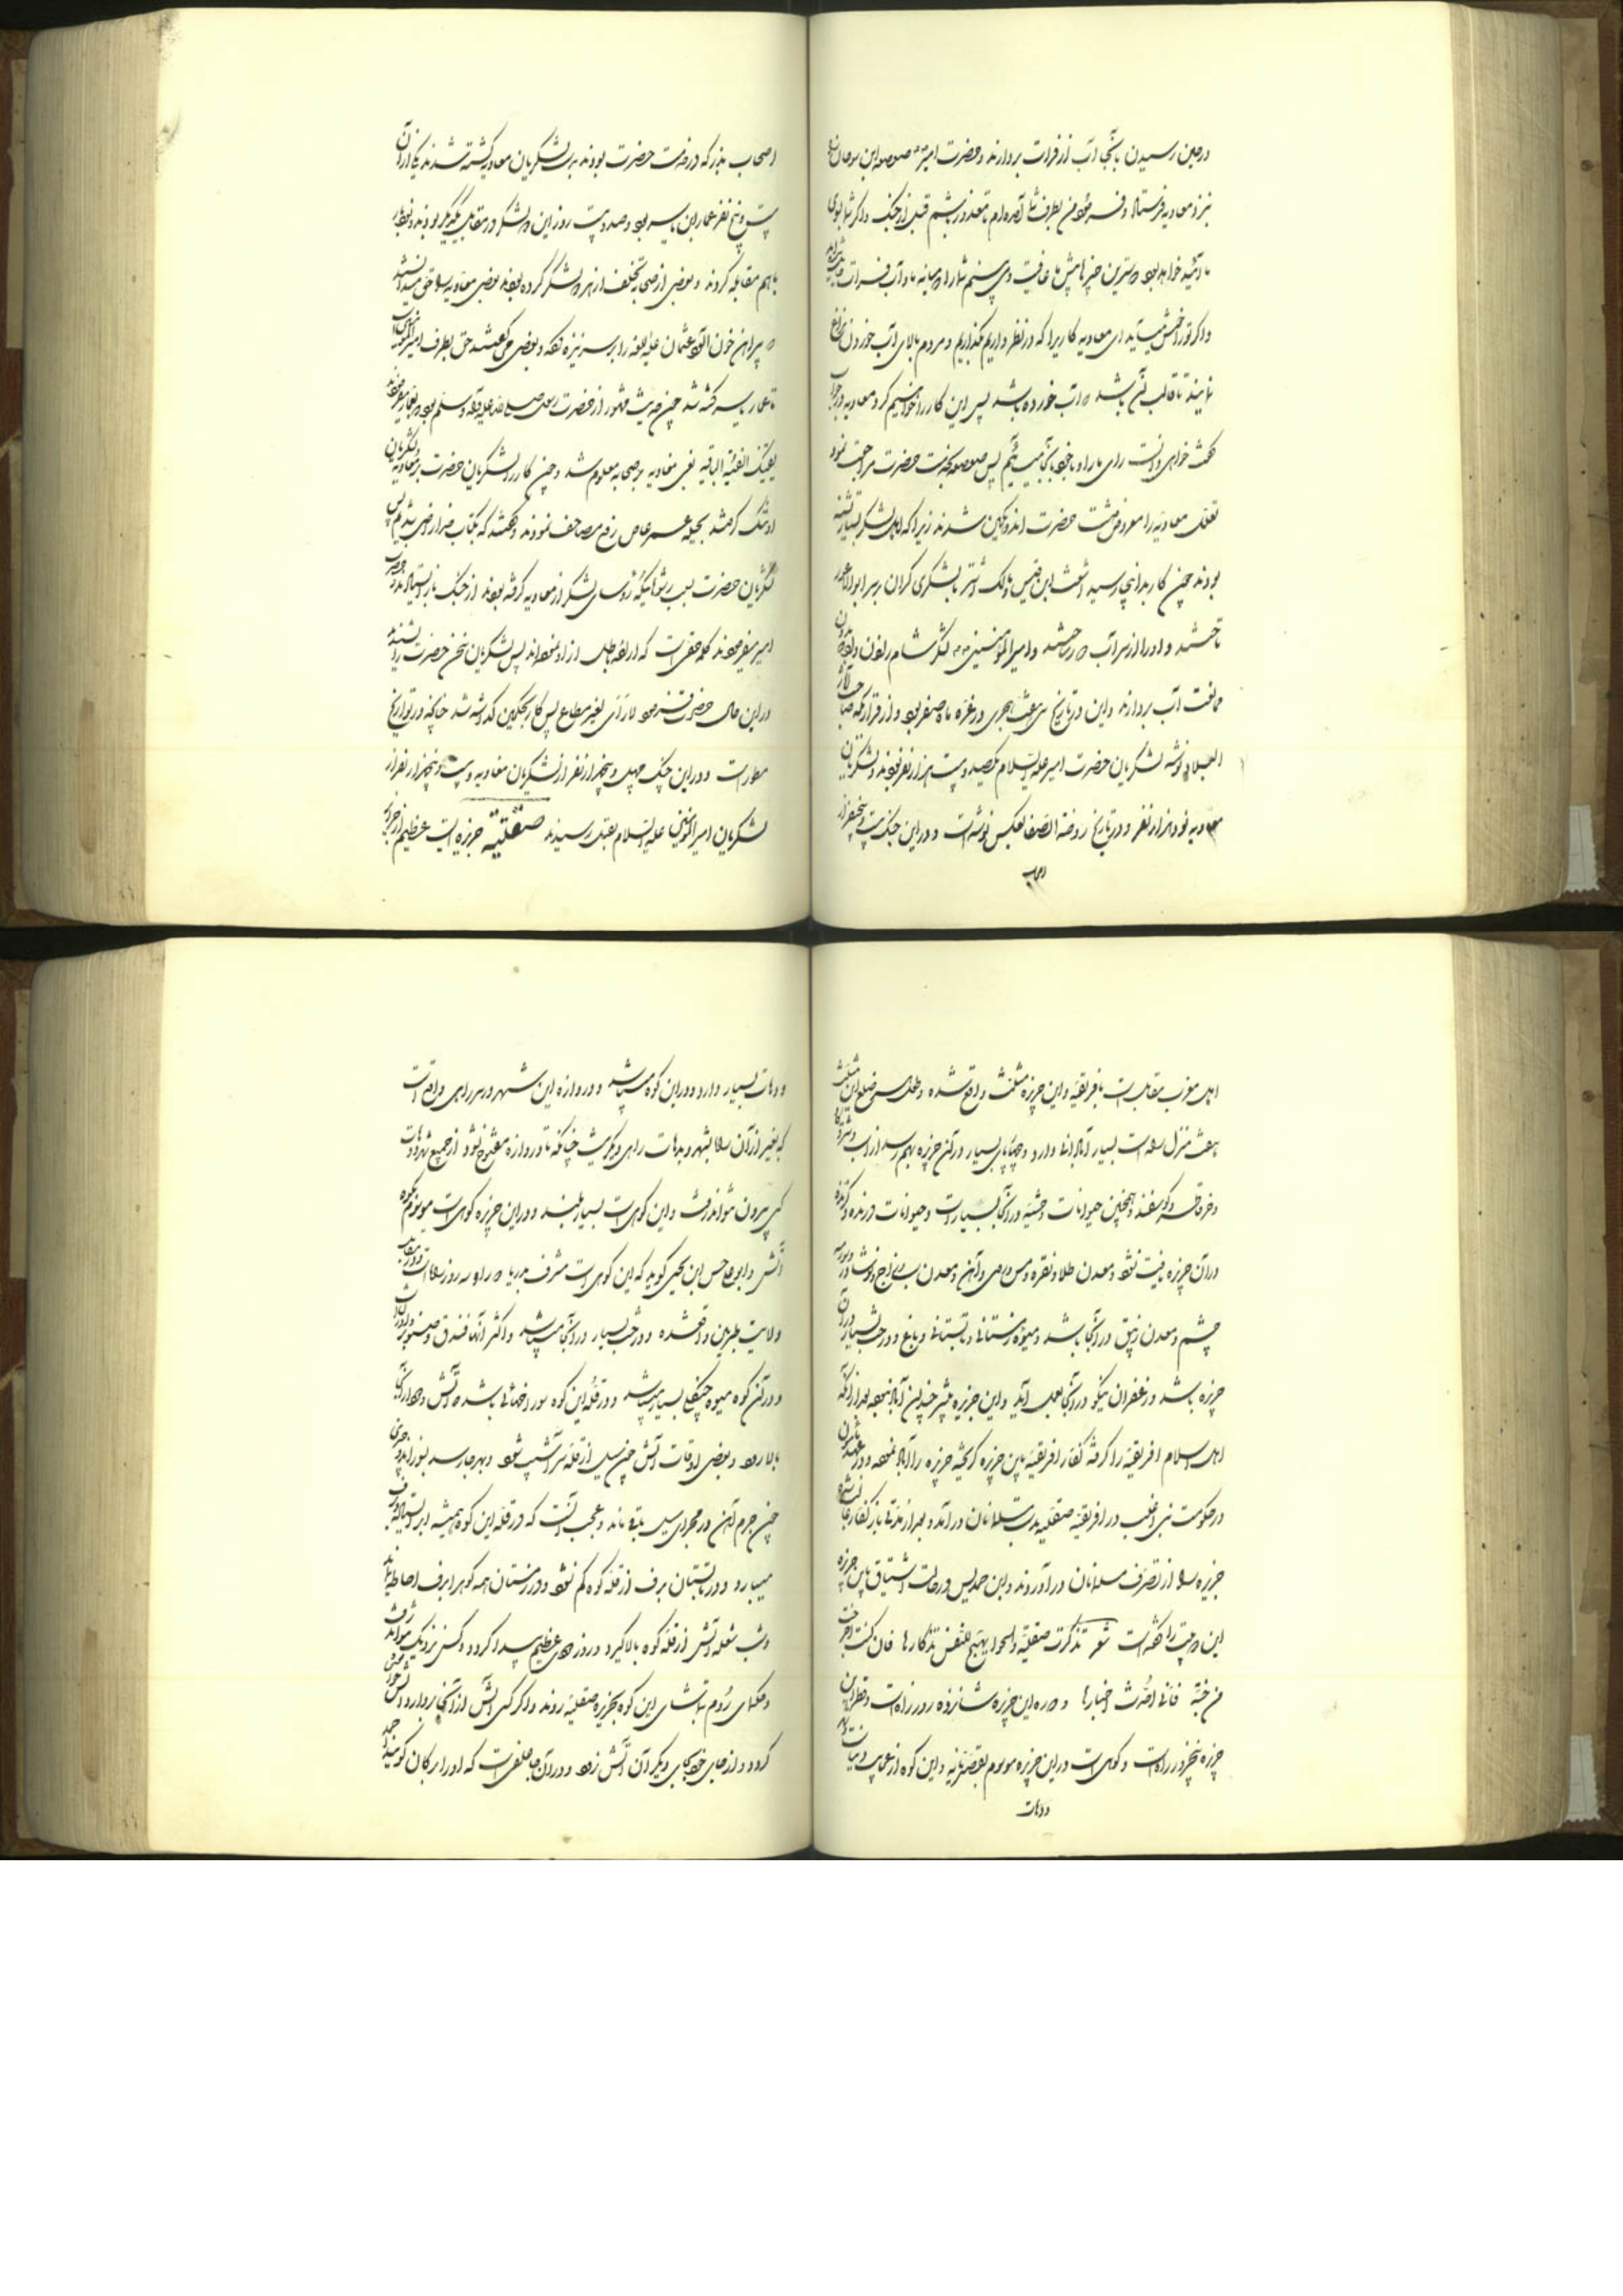 در حین رسیدن بآنجا آب از فرات بردارند و حضرت امیر صعصعه ابن صوحان
نزد معاویه فرستاد و فرمود من بطرف شما آمده‌ام تا معذور باشم قبل از جنگ و اگر شما بودی
و اگر تو را خوش میآید ای معاویه کاریرا که در نظر داریم بگذاریم و مردم بالای آب خوردن نزاع
نمایند تا غالب آن باشد که آب خورده باشد پس این کار را خواهیم کرد و معاویه در جواب
گفت خواهی دانست رای ما را و ما خود بآنجا میآئیم پس صعصعه بخدمت حضرت مراجعت نمود
تعلل معاویه را معروض داشت حضرت اندوهگین شدند زیرا که اهل لشکر بسیار تشنه
بودند چون کار بدانجا رسید اشعث ابن قیس و مالک اشتر با لشکری گران بر سر ابو الاعور
تاختند و او را از سر آب دور ساختند و امیر المؤمنین لشکر شام را
ممانعت آب بردارند و این در تاریخ سی و هفت هجری در غره ماه صفر بود و از قراریکه صاحب
البلدان نوشته لشکریان حضرت امیر علیه السلام یکصد و بیست هزار نفر بودند و لشکریان
معاویه نود هزار نفر و در تاریخ روضة الصفا بعکس نوشته است و در این جنگ بیست و پنجهزار
اصحاب
اصحاب بدر که در خدمت حضرت بودند بدست لشکریان معاویه کشته شدند یکی از آن
بیست و پنج نفر عمار ابن یاسر بود و صد و بیست روز این دو لشکر در مقابل یکدیگر بودند و
باهم مقابله کردند و بعضی از صحابه تخلف از هر دو لشکر کرده بودند بعضی معاویه را حق میدانستند
که پیراهن خون آلود عثمان علیه اللعنه را بر سر نیزه کرده و بعضی میگفتند حق بطرف امیر المؤمنین است
تا عمار یاسر کشته شد چون حدیث مشهور از حضرت رسول صلی الله علیه و آله و سلم بود که بعمار میفرمودند
یقتلک الفئة الباغیه بغی معاویه بر صحابه معلوم شد و چون کار را لشکریان حضرت بر لشکریان معاویه
تنگ گرفتند بحیله عمرو عاص رفع مصاحف نمودند و گفتند که بکتاب خدا راضی شدیم پس
لشکریان حضرت بسبب رشوه‌ائیکه رؤسای لشکر از معاویه گرفته بودند از جنگ باز ایستادند حضرت
امیر میفرمودند کلمه حقی است که اراده باطل از او نموده‌اند پس لشکریان سخن حضرت را نشنیدند
در این حال حضرت فرمود لا رأی لغیر مطاع پس کار بحکمین گذاشته شد چنانچه در تواریخ
مسطور است و در این جنگ چهل و پنجهزار نفر از لشکریان معاویه و بیست و پنجهزار نفر از
لشکریان امیر المؤمنین علیه السلام بقتل رسیدند صقلیّه جزیره ایست عظیم از جزایر
اهل مغرب مقابل است بافریقیه و این جزیره مثلث واقع شده و طول هر ضلع این مثلث
هفت منزل راه است بسیار آبادانی دارد و چهارپای بسیار در آن جزیره بهم رسد از اسب و شتر و گاو
و خر و قاطر و گوسفند و همچنین حیوانات وحشیه در آنجا بسیار است و حیوانات درنده و گزنده
در آن جزیره یافت نشود و معدن طلا و نقره و مس و قلعی و آهن و معدن زاج و نوشادر
چشم و معدن زیبق در آنجا باشد و میوه زمستانی و تابستانی و باغ و درخت بسیار در آن
جزیره باشد و زعفران نیکو در آنجا بعمل آید و این جزیره پیشتر چندان آباد نبود بعد از آنکه
اهل اسلام افریقیه را گرفته کفار افریقیه باین جزیره گریخته جزیره را آباد نمودند و در
در حکومت بنی اغلب در افریقیه صقلیه بدست مسلمانان درآمد و بعد از مدتی باز کفار
جزیره را از تصرف مسلمانان درآوردند و ابن حمدیس در حالت اشتیاق باین جزیره
این دو بیت را گفته است شعر تذکرت صقلیة و الهوا یهیج للنفس تذکارها فان کنت اخرجت
من جنة فانی احدث اخبارها و دوره این جزیره شانزده روزه راه است و قطر این
جزیره پنج روزه راه است و کوهی است در این جزیره موسوم بقصریانه و این کوه از عجایب دنیاست
و دهات
و دهات بسیار دارد و در این کوه میباشد و دروازه این شهر در سر راهی واقع است
که بغیر از آن راه بشهر و بدهات راهی دیگر نیست چنانکه تا دروازه مفتوح نشود از جمیع شهر و دهات
کسی بیرون نتواند رفت و این کوهی است بسیار بلند و در این جزیره کوهی است موسوم بکوه
آتش و ابو علی حسن ابن یحیی گوید که این کوهی است مشرف بدریا دوره او سه روز راه است
ولایت طبرمین واقع شده و درخت بسیار در آنجا میباشد و اکثر آنها فندق و صنوبر
و در آن کوه میوه جنگلی بسیار میباشد و در قله این کوه سوراخهائی باشد که آتش و دود از آنجا
بالا رود و بعضی اوقات آتش چون سیل از قله سرآشیب شود و بهر جا رسد بسوزاند
چون جرم آهن در مجرای سیل باقی ماند و عجب آنست که در قله این کوه همیشه ابر ایستاده برف
میبارد و در تابستان برف از قله کوه کم نشود و در زمستان همه کوه را برف احاطه نماید
و شب شعله آتش از قله کوه بالا گیرد و روز دودی عظیم پیدا گردد و کسی نزدیک نتواند رفت
و حکمای روم بتماشای این کوه بجزیره صقلیه روند و اگر کسی آتش از آنجا بردارد آتش خاموش
گردد و از جای خود بجای دیگر آن آتش نرود و در آن که او را برکان گویند